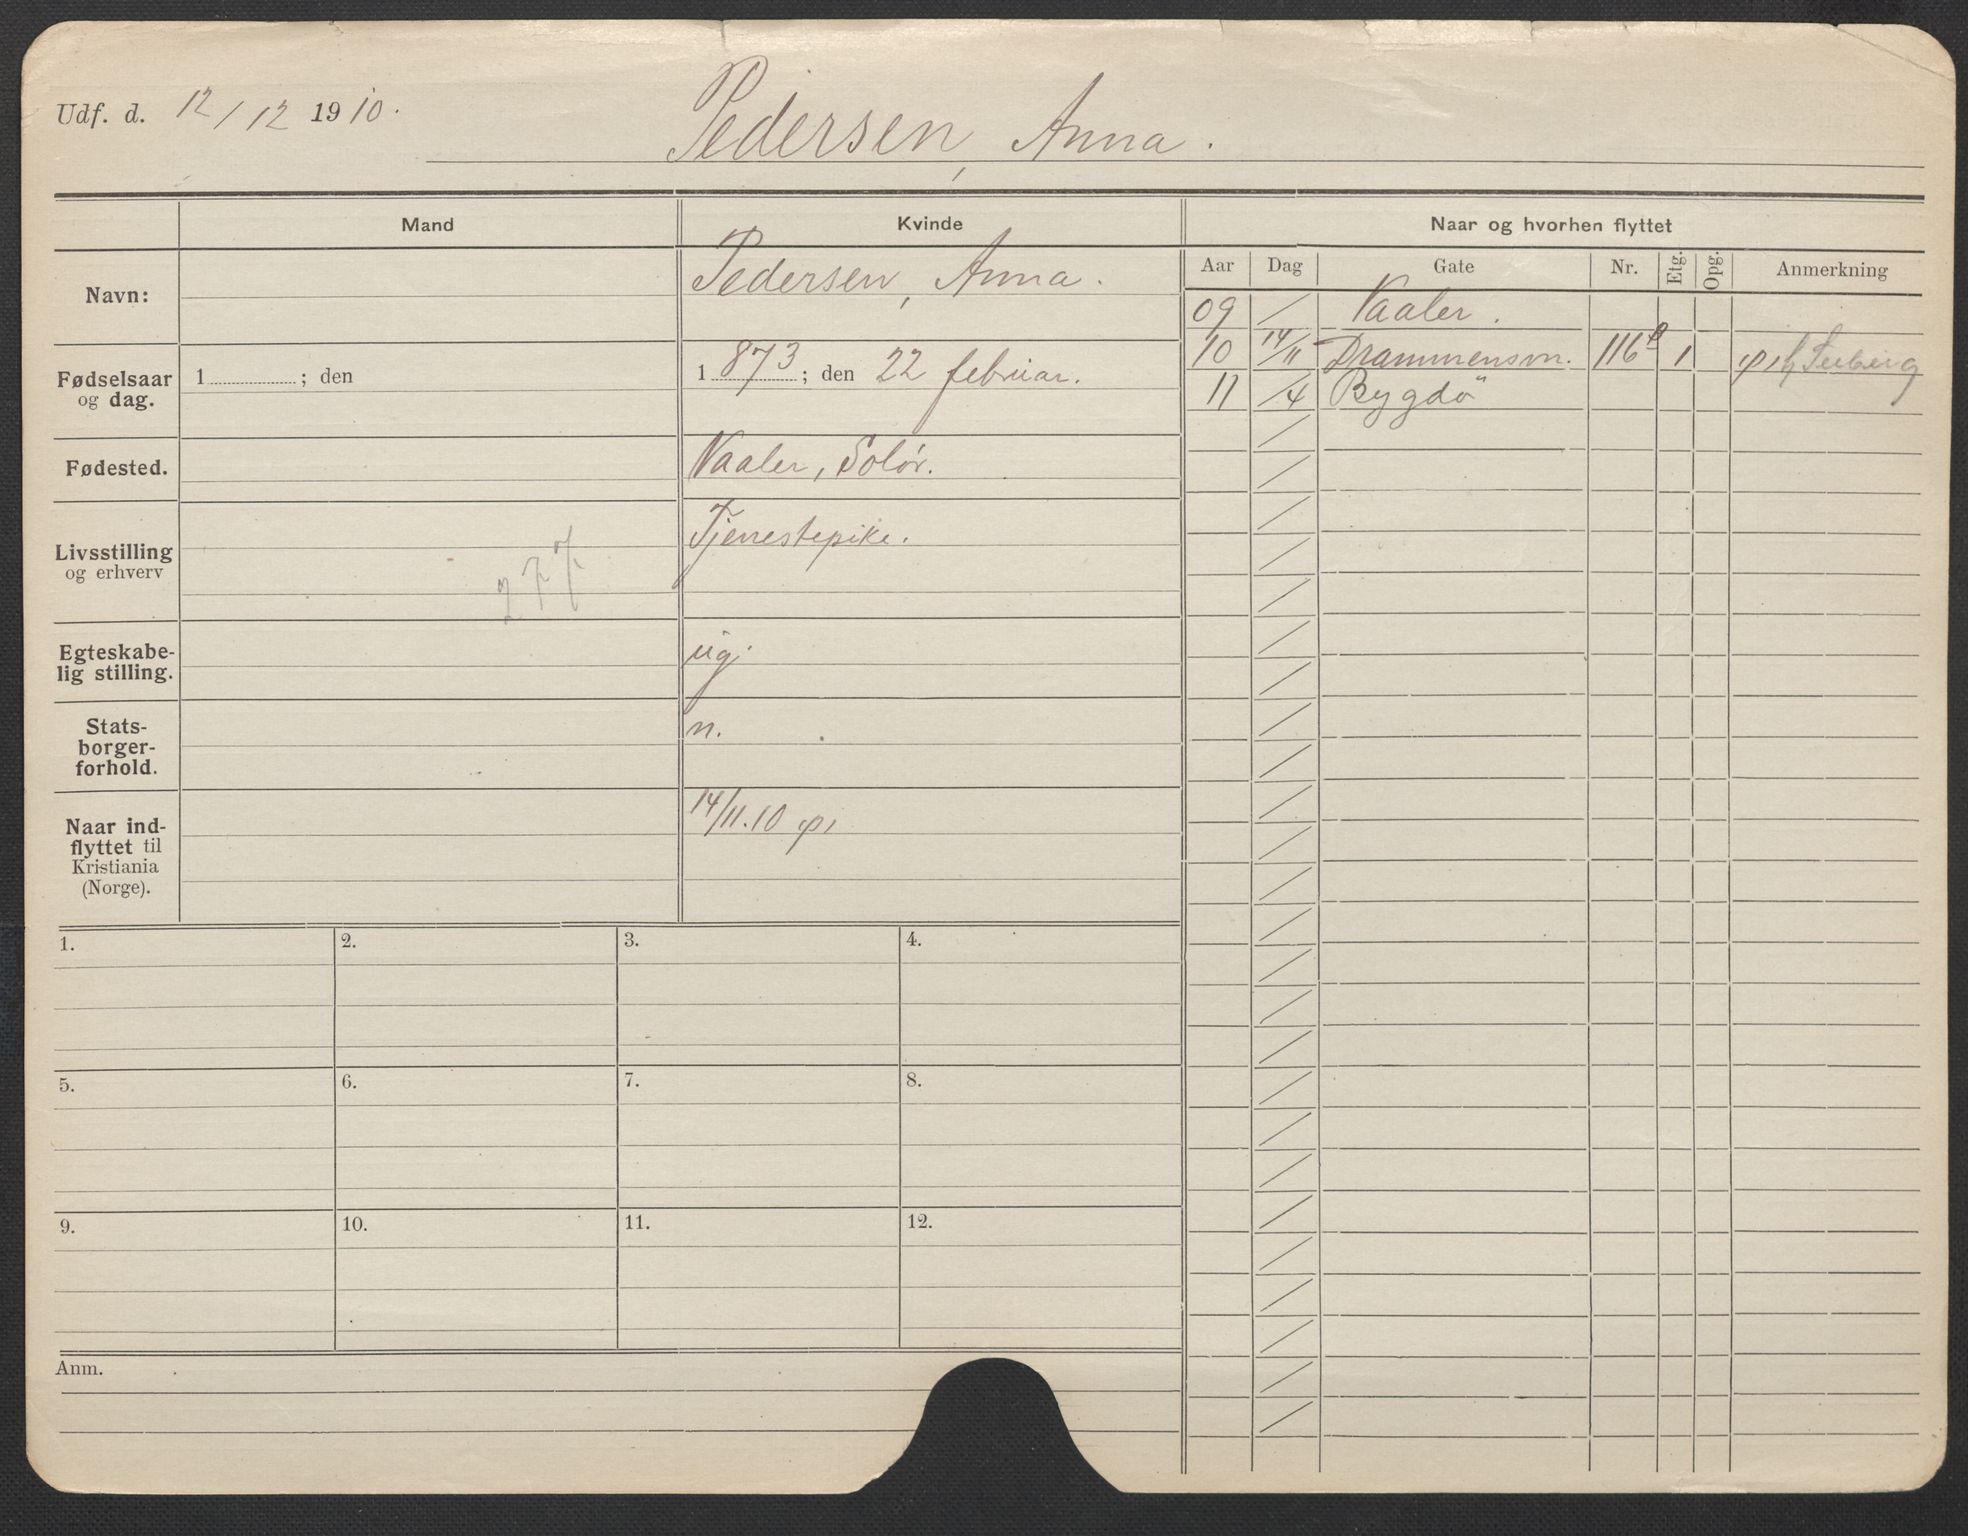 Udf. d. 12/12 1910.
Pedersen, Anna.
Mand Kvinde Naar og hvorhen flyttet
Aar Dag Gate Nr. Etg. Opg. Anmerkning
Navn: Pedersen, Anna.
09 / Vaaler.
10 14/11 Drammensvn. 116 1
11 /4 Bygdö
Fødselsaar og dag. 1 ; den 1873; den 22 februar.
Fødested. Vaaler, Solør.
Livsstilling og erhverv Tjenestepike.
277
Egteskabe-
lig stilling. ug.
Stats-
borger-
forhold. n.
Naar ind-
flyttet til
Kristiania
(Norge). 14/11.10
1. 2. 3. 4.
5. 6. 7. 8.
9. 10. 11. 12.
Anm.